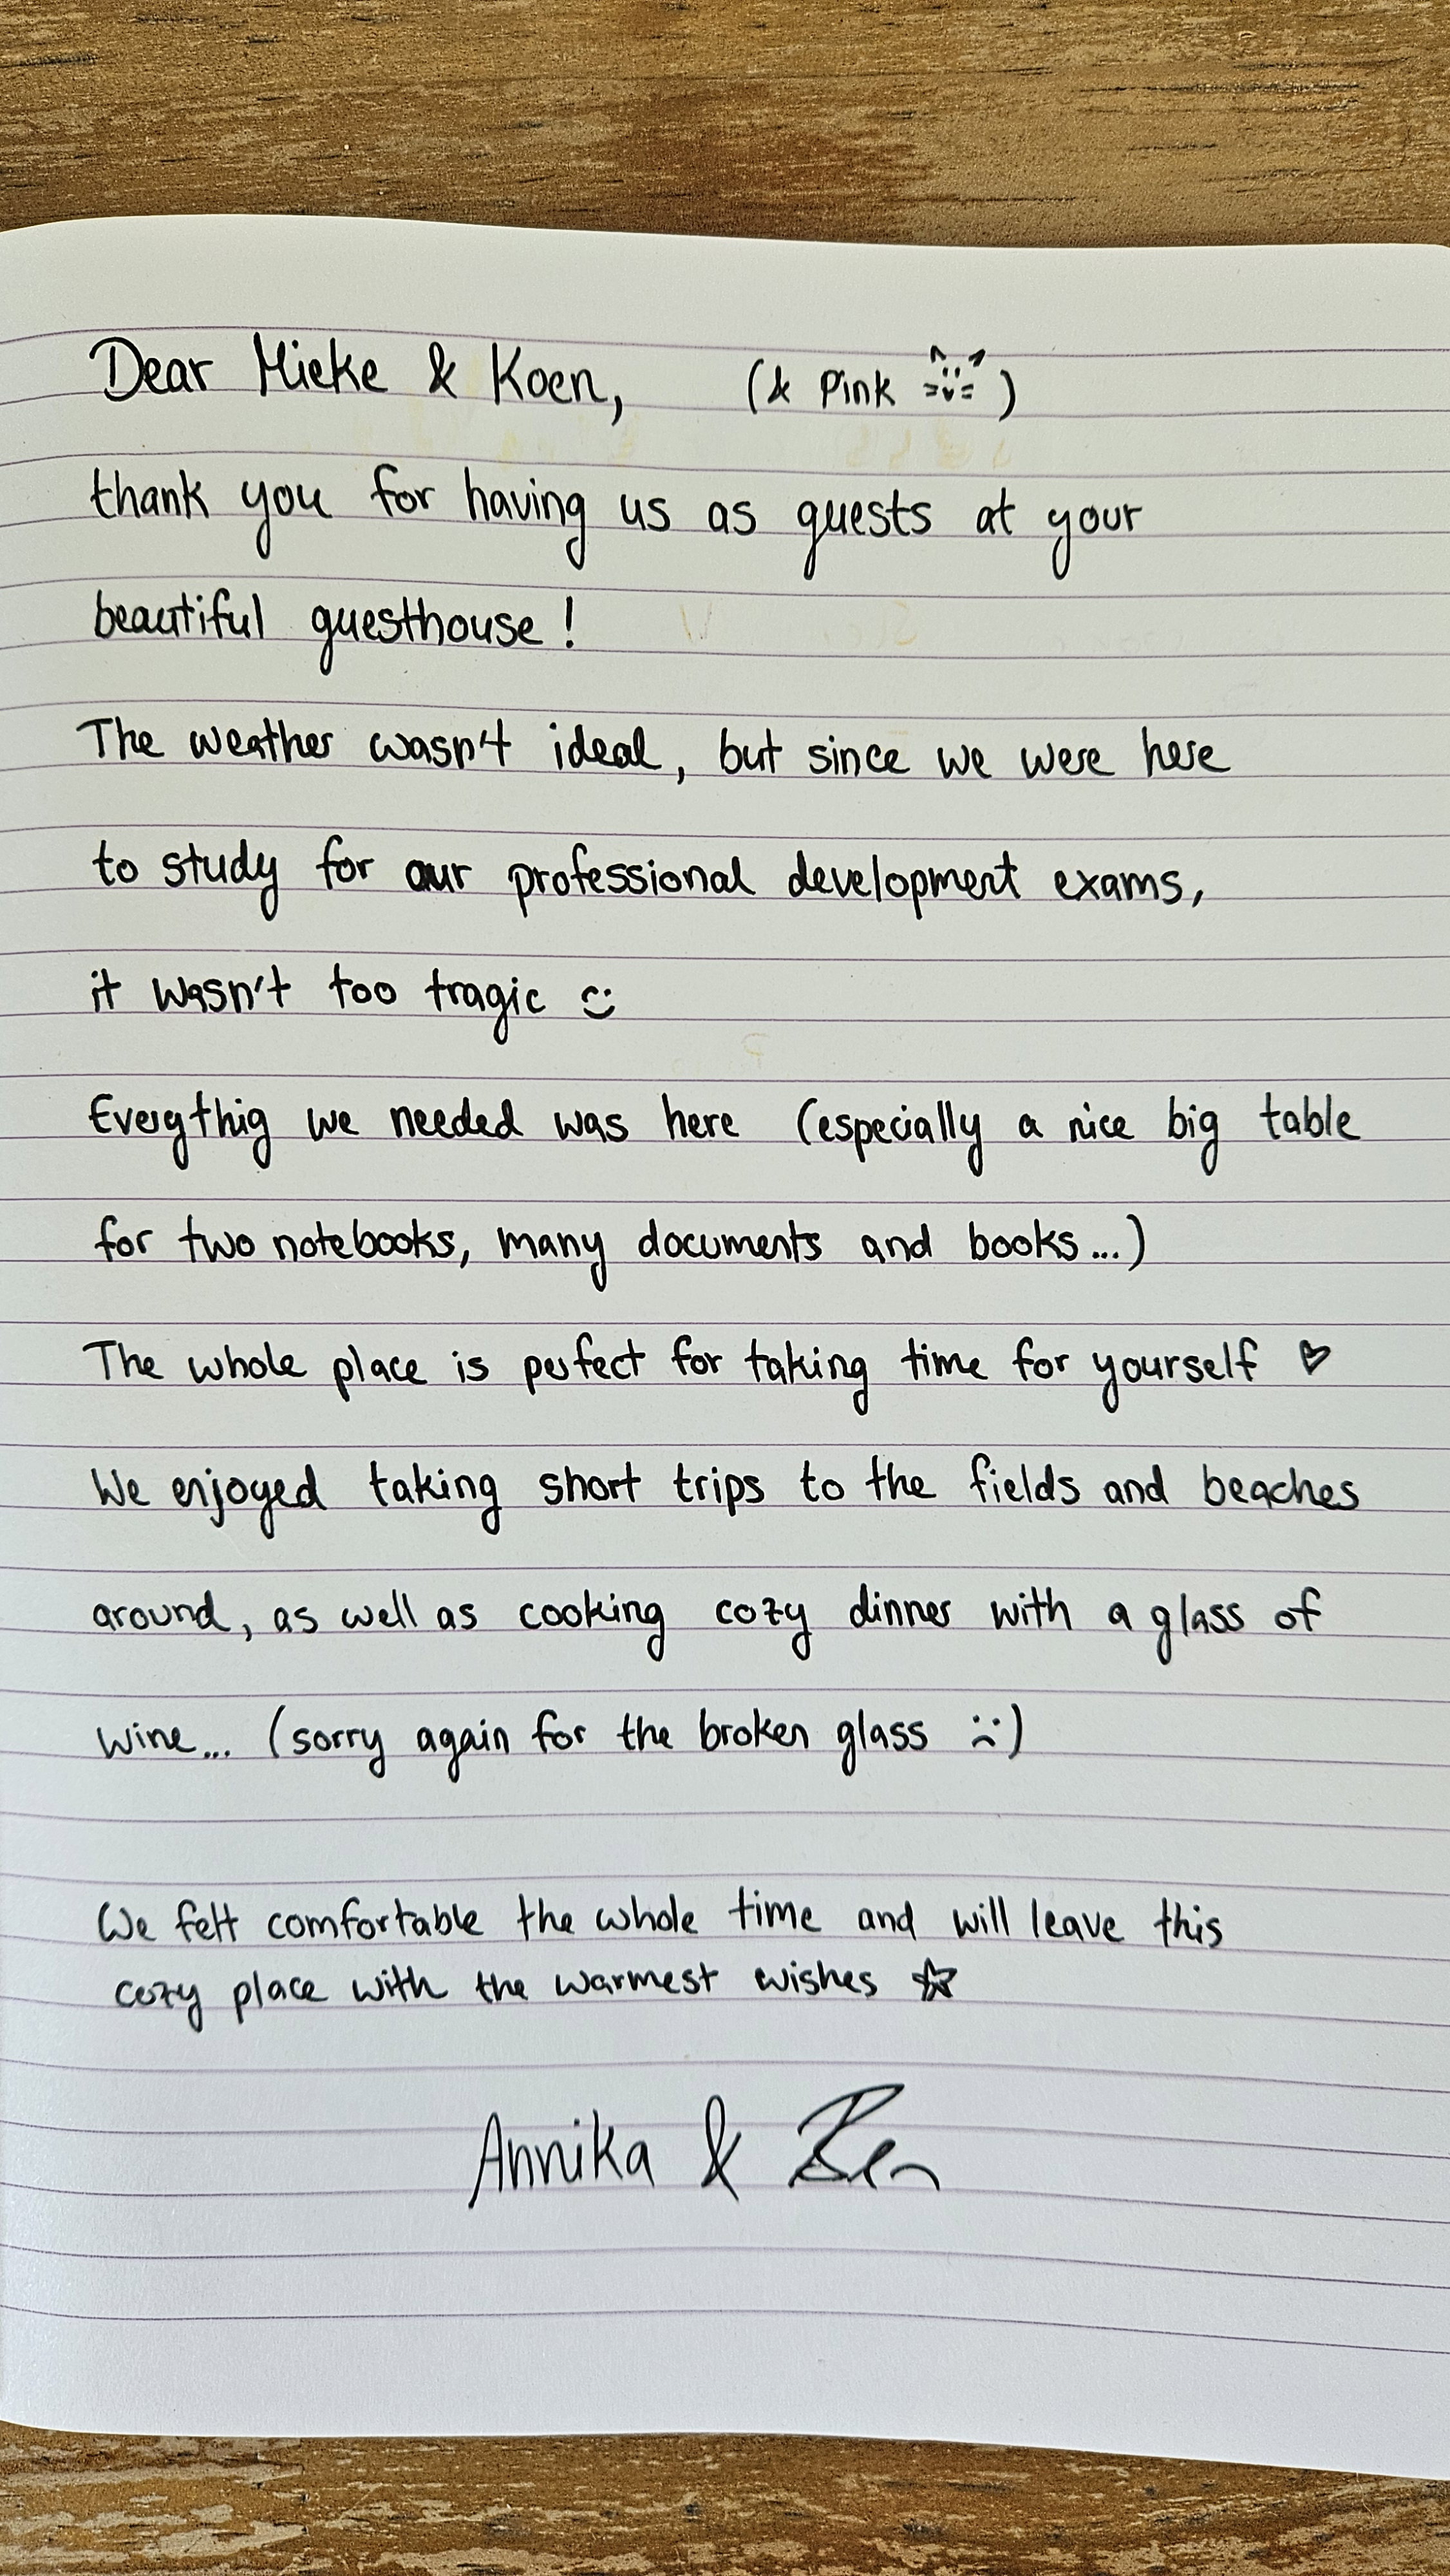 Dear Mieke & Koen, (& Pink =^..^=)
thank you for having us as guests at your
beautiful guesthouse!
The weather wasn't ideal, but since we were here
to study for our professional development exams,
it wasn't too tragic :)
Everythig we needed was here (especially a nice big table
for two notebooks, many documents and books...)
The whole place is perfect for taking time for yourself ♡
We enjoyed taking short trips to the fields and beaches
around, as well as cooking cozy dinner with a glass of
wine... (sorry again for the broken glass :()
We felt comfortable the whole time and will leave this
cozy place with the warmest wishes ☆
Annika & Ben